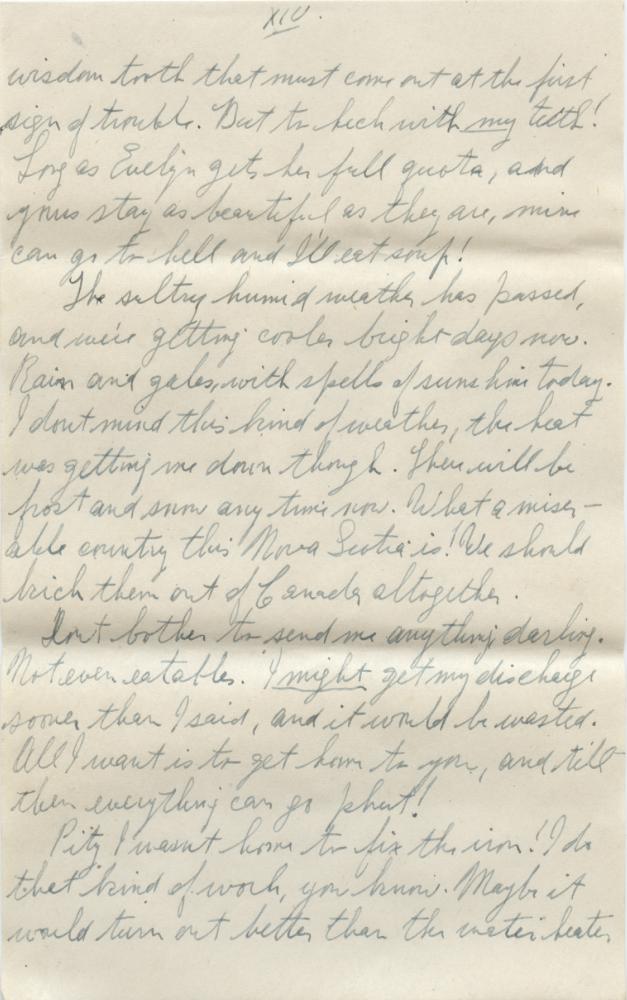 XIV.
wisdom tooth that must come out at the first
sign of trouble. But to heck with my teeth!
Long as Evelyn gets her full quota, and
yours stay as beautiful as they are, mine
can go to hell and I'll eat soup!
The sultry humid weather has passed,
and we're getting cooler bright days now.
Rain and gales, with spells of sunshine today.
I dont mind this kind of weather, the heat
was getting me down though. There will be
frost and snow any time now. What a miser-
able country this Nova Scotia is! We should
kick them out of Canada altogether.
Dont bother to send me anything darling.
Not even eatables. I might get my discharge
sooner than I said, and it would be wasted.
All I want is to get home to you, and till
then everything can go phut!
Pity I wasnt home to fix the iron! I do
that kind of work, you know. Maybe it
would turn out better than the water heater